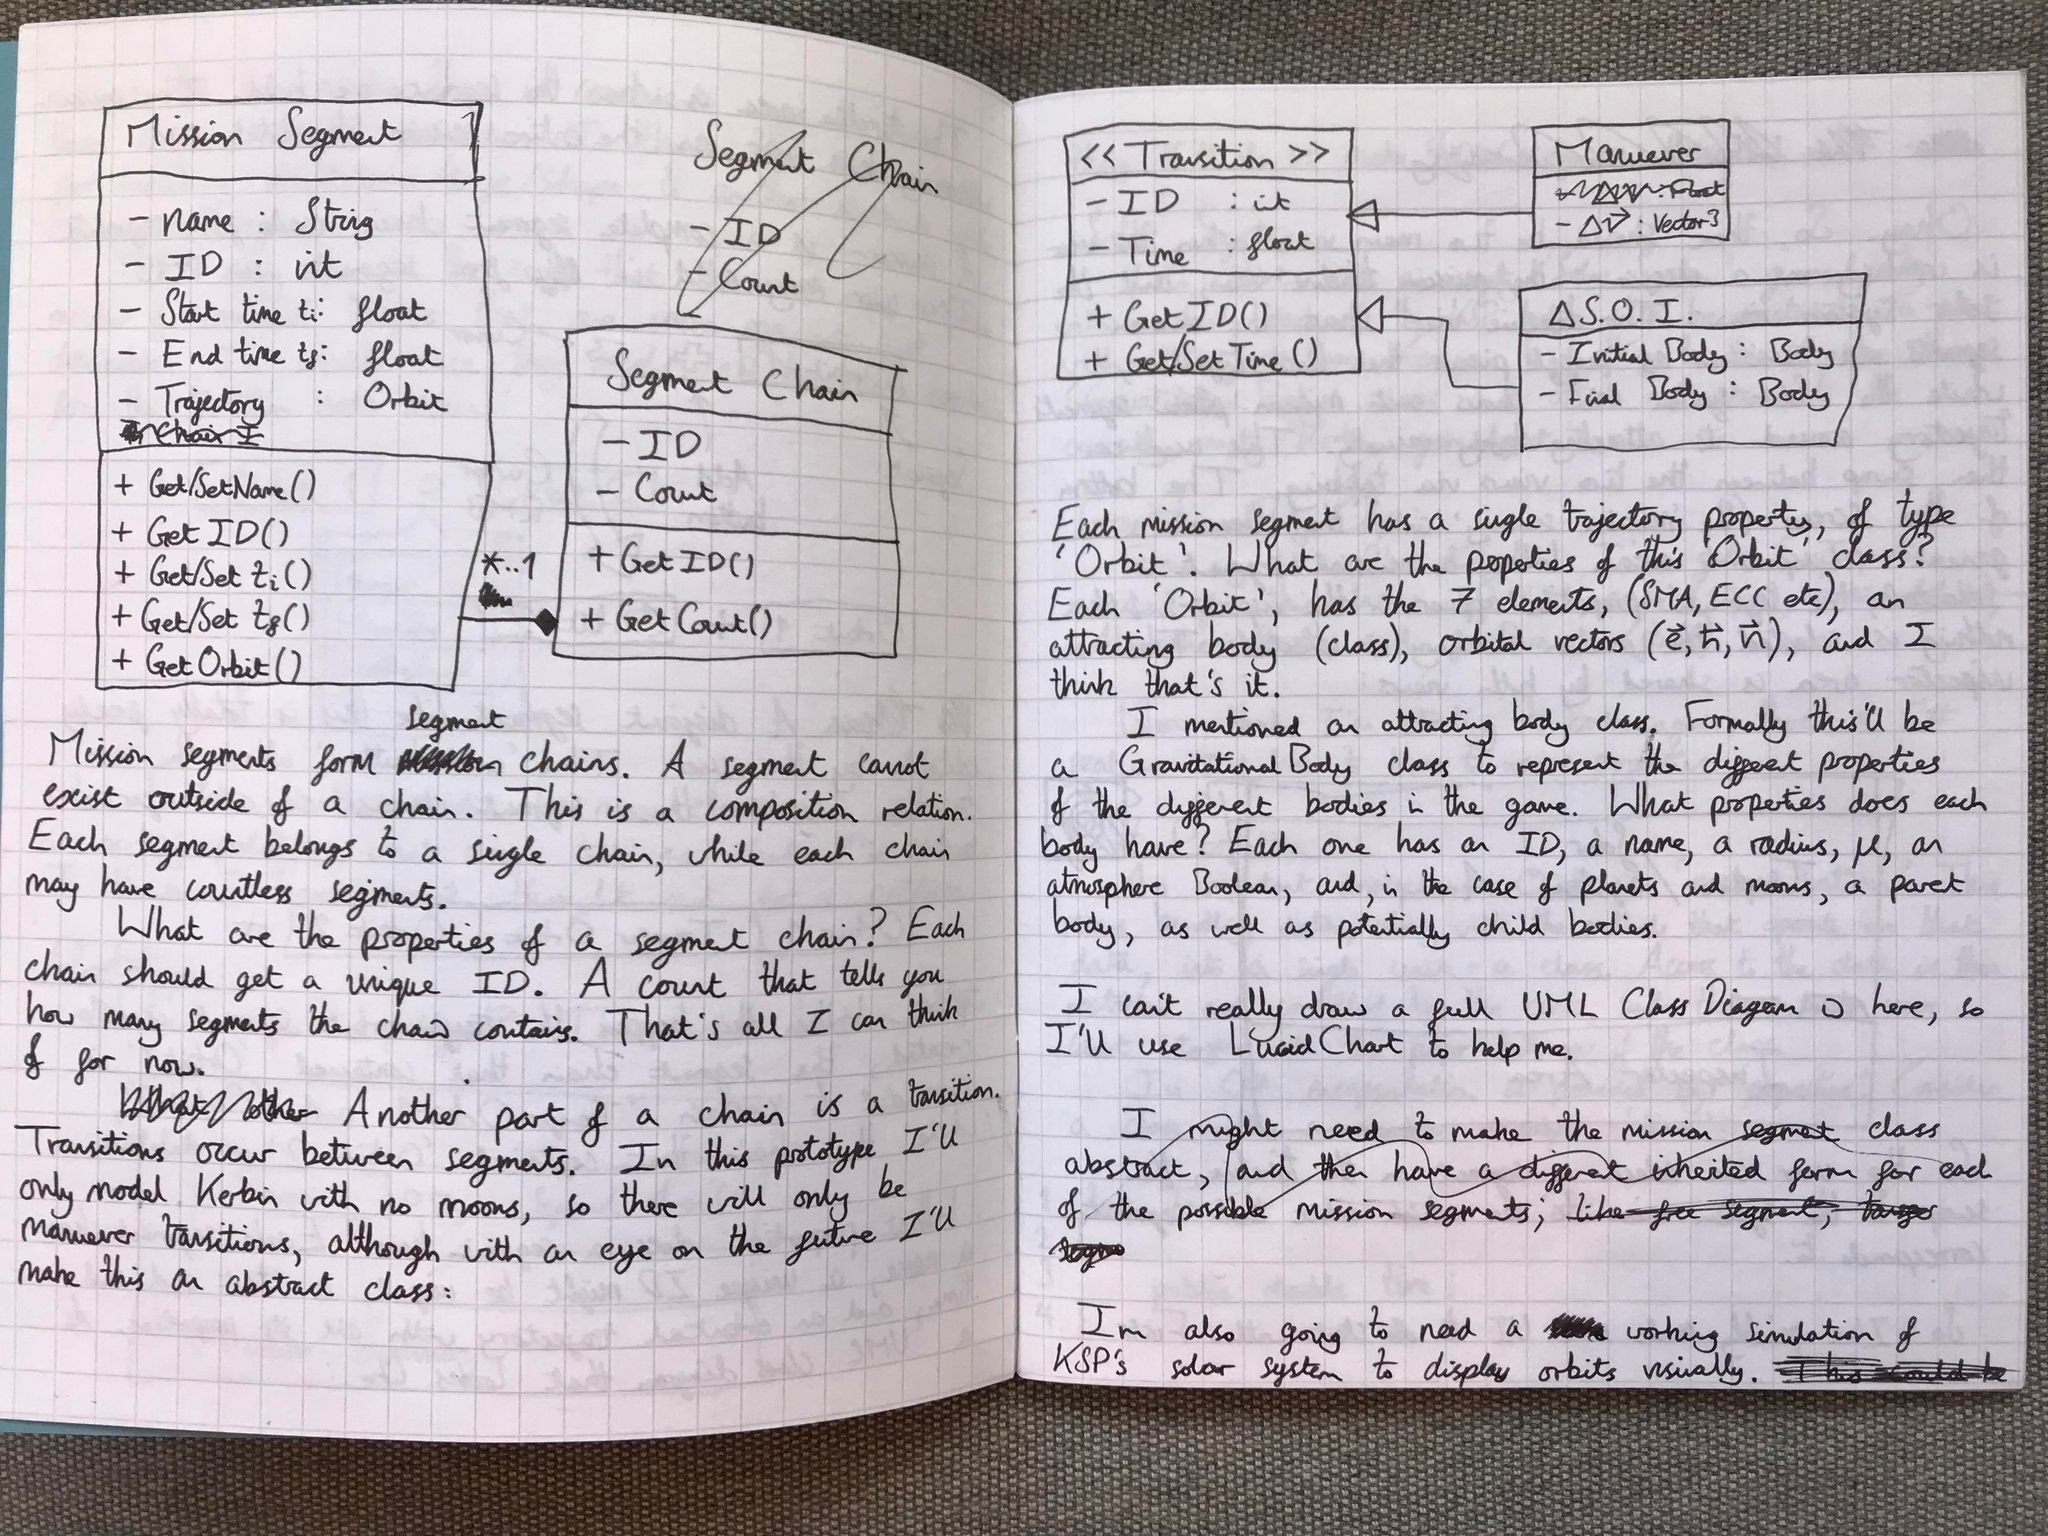 Mission Segment
- name : String
- ID : int
- Start time ti: float
- End time tf: float
- Trajectory : Orbit
Chain I
+ Get/SetName()
+ Get ID()
+ Get/Set ti()
+ Get/Set tf()
+ GetOrbit()
Segment Chain
- ID
- Count
*..1
Segment Chain
- ID
- Count
+ Get ID()
+ GetCount()
segment
Mission segments form chains. A segment cannot
exist outside of a chain. This is a composition relation.
Each segment belongs to a single chain, while each chain
may have countless segments.
What are the properties of a segment chain? Each
chain should get a unique ID. A count that tells you
how many segments the chain contains. That's all I can think
of for now.
What other Another part of a chain is a transition.
Transitions occur between segments. In this prototype I'll
only model Kerbin with no moons, so there will only be
maneuver transitions, although with an eye on the future I'll
make this an abstract class:
<< Transition >>
- ID : int
- Time : float
+ Get ID()
+ Get/Set Time()
Maneuver
Δv : Float
- Δv⃗ : Vector3
Δ S.O.I.
- Initial Body : Body
- Final Body : Body
Each mission segment has a single trajectory property, of type
'Orbit'. What are the properties of this 'Orbit' class?
Each 'Orbit', has the 7 elements, (SMA, ECC etc), an
attracting body (class), orbital vectors (e⃗, h⃗, n⃗), and I
think that's it.
I mentioned an attracting body class. Formally this'll be
a Gravitational Body class to represent the different properties
of the different bodies in the game. What properties does each
body have? Each one has an ID, a name, a radius, μ, an
atmosphere Boolean, and, in the case of planets and moons, a parent
body, as well as potentially child bodies.
I can't really draw a full UML Class Diagram in here, so
I'll use LucidChart to help me.
I might need to make the mission segment class
abstract, and then have a different inherited form for each
of the possible mission segments; like free segment,
segm
Im also going to need a working simulation of
KSP's solar system to display orbits visually. This could be